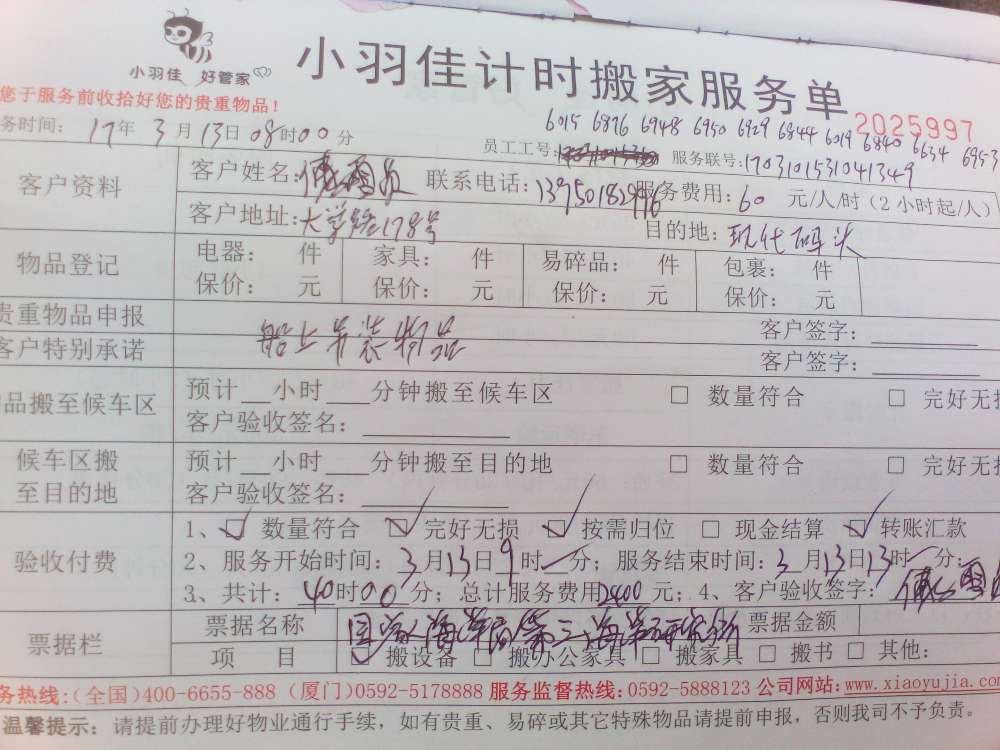 小羽佳 好管家
小羽佳计时搬家服务单
您于服务前收拾好您的贵重物品！
2025997
6015 6876 6948 6950 6929 6844 6019 6840 6634 6953
务时间： 17年 3月13日 08时00分
员工工号： 服务联号:1703101531041349
客户资料
客户姓名: 联系电话:13950182996 服务费用: 60 元/人/时（2小时起/人）
客户地址:大学路178号 目的地: 现代码头
物品登记
电器： 件 家具： 件 易碎品： 件 包裹： 件
保价： 元 保价： 元 保价： 元 保价： 元
贵重物品申报 客户签字：
船上吊装物品
客户特别承诺 客户签字：
品搬至候车区
预计 小时 分钟搬至候车区 □ 数量符合 □ 完好无损
客户验收签名：
候车区搬至目的地
预计 小时 分钟搬至目的地 □ 数量符合 □ 完好无损
客户验收签名：
验收付费
1、☑ 数量符合 ☑ 完好无损 ☑ 按需归位 □ 现金结算 ☑ 转账汇款
2、服务开始时间：3月13日9时一分；服务结束时间：3月13日13时一分；
3、共计：40时00分；总计服务费用2400元；4、客户验收签字：
票据栏
票据名称 国家海洋局第三海洋研究所 票据金额
项 目 ☑ 搬设备 □ 搬办公家具 □ 搬家具 □ 搬书 □ 其他:
务热线:(全国)400-6655-888 (厦门)0592-5178888 服务监督热线:0592-5888123 公司网站:www.xiaoyujia.com
温馨提示：请提前办理好物业通行手续，如有贵重、易碎或其它特殊物品请提前申报，否则我司不予负责。